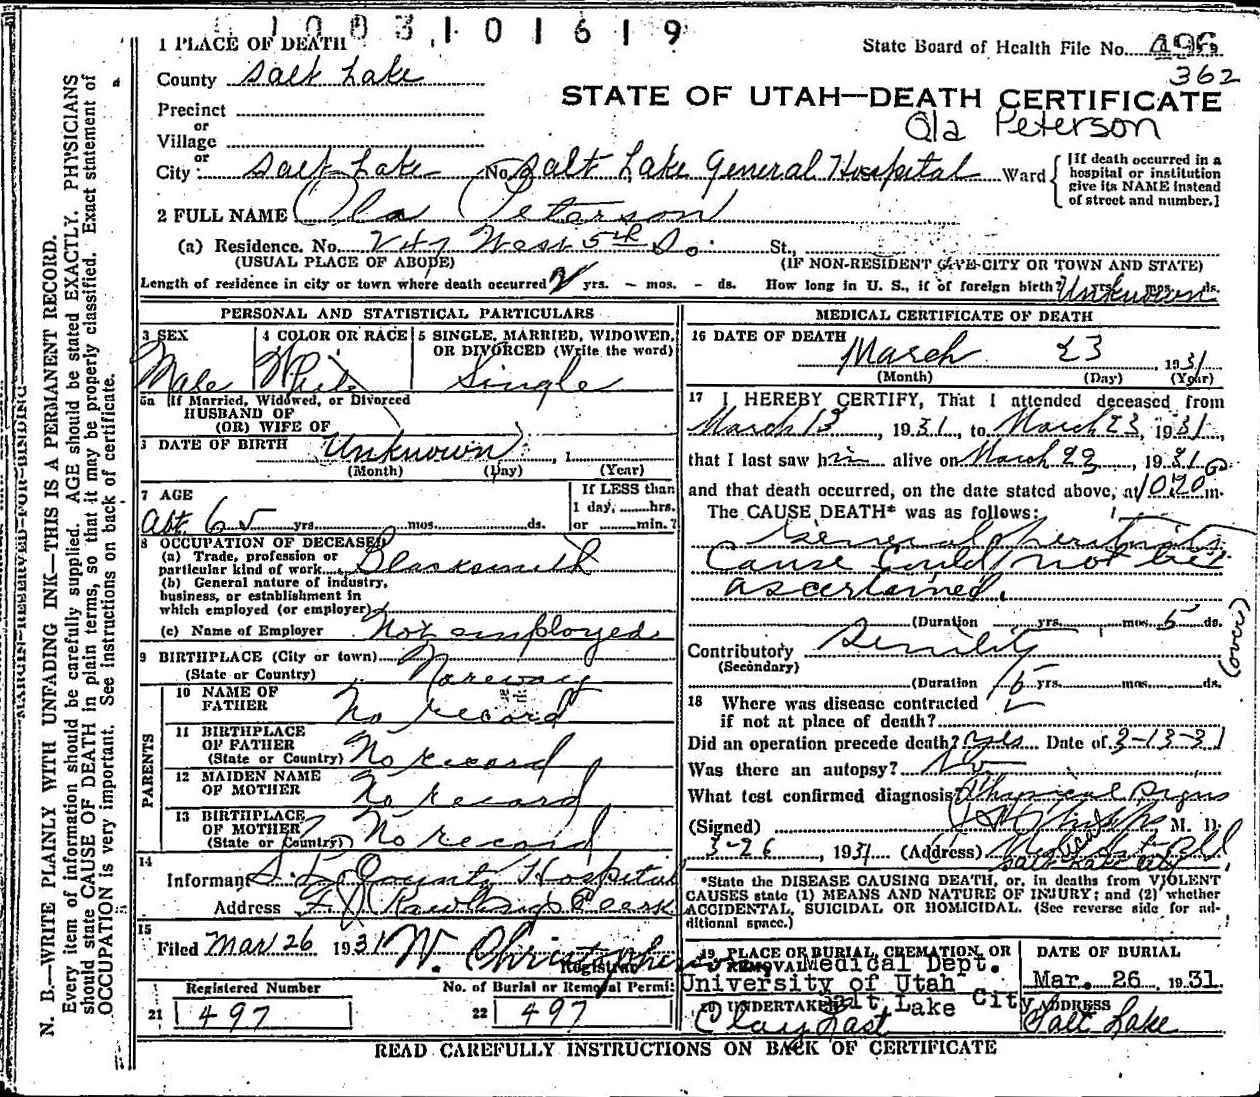 1003101619
1 PLACE OF DEATH
State Board of Health File No. 496
County Salt Lake
362
STATE OF UTAH—DEATH CERTIFICATE
Precinct
or
Ola Peterson
Village
or
City Salt Lake No. Salt Lake General Hospital Ward
[If death occurred in a hospital or institution give its NAME instead of street and number.]
2 FULL NAME Ola Peterson
(a) Residence. No. 747 West 5th So. St.,
(USUAL PLACE OF ABODE) (IF NON-RESIDENT GIVE CITY OR TOWN AND STATE)
Length of residence in city or town where death occurred yrs. - mos. - ds. How long in U. S., if of foreign birth? Unknown yrs. mos. ds.
PERSONAL AND STATISTICAL PARTICULARS
3 SEX 4 COLOR OR RACE 5 SINGLE, MARRIED, WIDOWED,
OR DIVORCED (Write the word)
Male White Single
5a If Married, Widowed, or Divorced
HUSBAND OF
(OR) WIFE OF
DATE OF BIRTH Unknown , 1
(Month) (Day) (Year)
7 AGE If LESS than
1 day, hrs.
Abt 65 yrs. mos. ds. or min.?
8 OCCUPATION OF DECEASED
(a) Trade, profession or
particular kind of work Blacksmith
(b) General nature of industry,
business, or establishment in
which employed (or employer)
(c) Name of Employer Not employed
9 BIRTHPLACE (City or town)
(State or Country) Noreway
PARENTS
10 NAME OF
FATHER No record
11 BIRTHPLACE
OF FATHER
(State or Country) No record
12 MAIDEN NAME
OF MOTHER No record
13 BIRTHPLACE
OF MOTHER
(State or Country) No record
14
Informant S. L. County Hospital
Address Rawlings Clerk
15
Filed Mar 26 1931 W. Christopherson
Registrar
Registered Number No. of Burial or Removal Permit
21 497 22 497
MEDICAL CERTIFICATE OF DEATH
16 DATE OF DEATH
March 23 , 1931
(Month) (Day) (Year)
17 I HEREBY CERTIFY, That I attended deceased from
March 13 , 1931, to March 23, 1931,
that I last saw him alive on March 23 , 1931
and that death occurred, on the date stated above, at 1020 m.
The CAUSE DEATH* was as follows:
General peritonitis
Cause could not be
ascertained.
(Duration yrs. mos. 5 ds.
Contributory Senility
(Secondary)
(Duration 15 yrs. mos. ds.
(over)
18 Where was disease contracted
if not at place of death?
Did an operation precede death? Yes Date of 3-13-31
Was there an autopsy? No
What test confirmed diagnosis? Physical Signs
(Signed) M. D.
3-26 , 1931 (Address) Medical Art Bld
Salt Lake City
*State the DISEASE CAUSING DEATH, or, in deaths from VIOLENT
CAUSES state (1) MEANS AND NATURE OF INJURY; and (2) whether
ACCIDENTAL, SUICIDAL OR HOMICIDAL. (See reverse side for ad-
ditional space.)
19 PLACE OF BURIAL, CREMATION, OR DATE OF BURIAL
REMOVAL Medical Dept.
University of Utah Mar. 26 , 1931
20 UNDERTAKER Salt Lake City ADDRESS
Salt Lake
READ CAREFULLY INSTRUCTIONS ON BACK OF CERTIFICATE
MARGIN RESERVED FOR BINDING
N. B.—WRITE PLAINLY WITH UNFADING INK—THIS IS A PERMANENT RECORD.
Every item of information should be carefully supplied. AGE should be stated EXACTLY. PHYSICIANS
should state CAUSE OF DEATH in plain terms, so that it may be properly classified. Exact statement of
OCCUPATION is very important. See instructions on back of certificate.